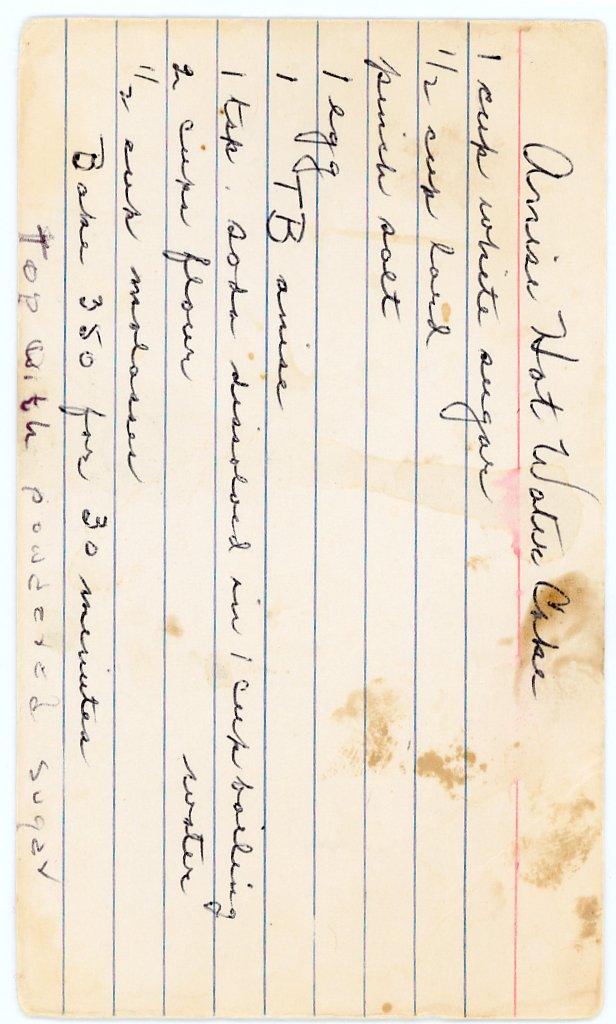 Anise Hot Water Cake
1 cup white sugar
1/2 cup lard
pinch salt
1 egg
1 TB anise
1 tsp. soda dissolved in 1 cup boiling
water
2 cups flour
1/2 cup molasses
Bake 350 for 30 minutes
Top with powdered sugar